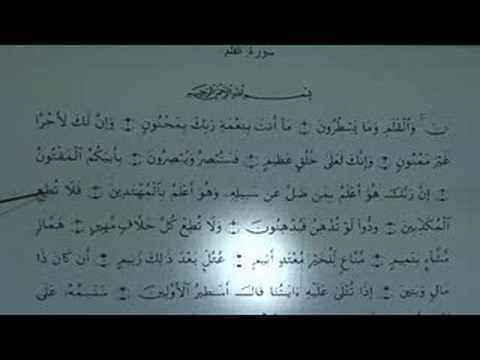 سورة القلم
بِسْمِ اللَّهِ الرَّحْمَٰنِ الرَّحِيمِ
نٓ ۚ وَالْقَلَمِ وَمَا يَسْطُرُونَ ۝ مَا أَنتَ بِنِعْمَةِ رَبِّكَ بِمَجْنُونٍ ۝ وَإِنَّ لَكَ لَأَجْرًا
غَيْرَ مَمْنُونٍ ۝ وَإِنَّكَ لَعَلَىٰ خُلُقٍ عَظِيمٍ ۝ فَسَتُبْصِرُ وَيُبْصِرُونَ ۝ بِأَييِّكُمُ الْمَفْتُونُ
۝ إِنَّ رَبَّكَ هُوَ أَعْلَمُ بِمَن ضَلَّ عَن سَبِيلِهِ وَهُوَ أَعْلَمُ بِالْمُهْتَدِينَ ۝ فَلَا تُطِعِ
الْمُكَذِّبِينَ ۝ وَدُّوا لَوْ تُدْهِنُ فَيُدْهِنُونَ ۝ وَلَا تُطِعْ كُلَّ حَلَّافٍ مَّهِينٍ ۝ هَمَّازٍ
مَّشَّاءٍ بِنَمِيمٍ ۝ مَّنَّاعٍ لِّلْخَيْرِ مُعْتَدٍ أَثِيمٍ ۝ عُتُلٍّ بَعْدَ ذَٰلِكَ زَنِيمٍ ۝ أَن كَانَ ذَا
مَالٍ وَبَنِينَ ۝ إِذَا تُتْلَىٰ عَلَيْهِ ءَايَٰتُنَا قَالَ أَسَٰطِيرُ الْأَوَّلِينَ ۝ سَنَسِمُهُ عَلَى